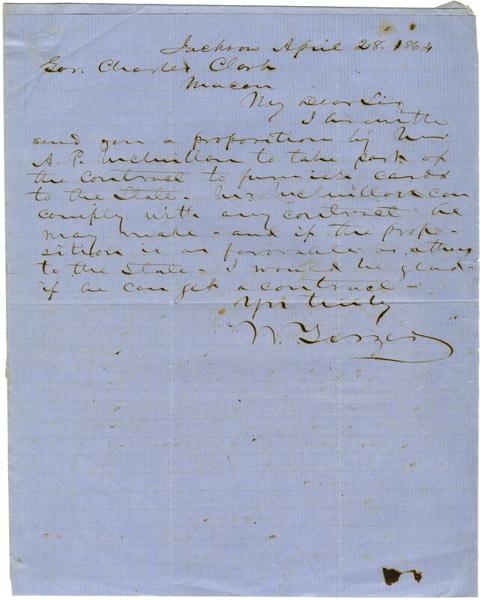 Jackson April 28. 1864
Gov. Charles Clark
Macon
My Dear Sir
I herewith
send you a proposition by Mr
A. P. McMillan to take part of
the contract to furnish cards
to the State. Mr McMillan can
comply with any contract he
may make - and if the propo-
sition is as favorable as others
to the State - I would be glad
if he can get a contract -
Yrs truly
W. Yerger